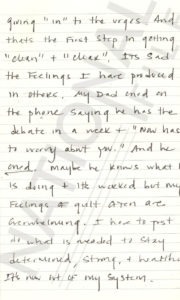 giving "in" to the urges. And
thats the First Step in getting
"clean" + "clear". ITS Sad
the Feelings I have produced
in others. My Dad cried on
the phone saying he has the
debate in a week + "Now has
to worry about you." And he
cried. maybe he knows what
is doing + its worked but my
Feelings of guilt often are
overwhelming. I have to just
do what is needed to stay
determined, strong, + healthier
It's now 1st of my system.